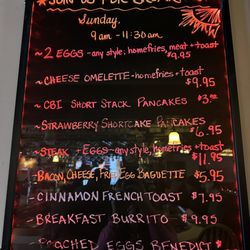 JOIN US FOR
Sunday.
9am - 11:30am
~2 EGGS - any style, homefries, meat + toast
$9.95
~CHEESE OMELETTE - homefries + toast
$9.95
~CBI SHORT STACK PANCAKES $3.95
~STRAWBERRY SHORTCAKE PANCAKES
$6.95
~STEAK + EGGS - any style, homefries + toast
$11.95
~BACON, CHEESE, FRIED EGG BAGUETTE $5.95
~CINNAMON FRENCH TOAST $7.95
~BREAKFAST BURRITO ~ $9.95
~POACHED EGGS BENEDICT